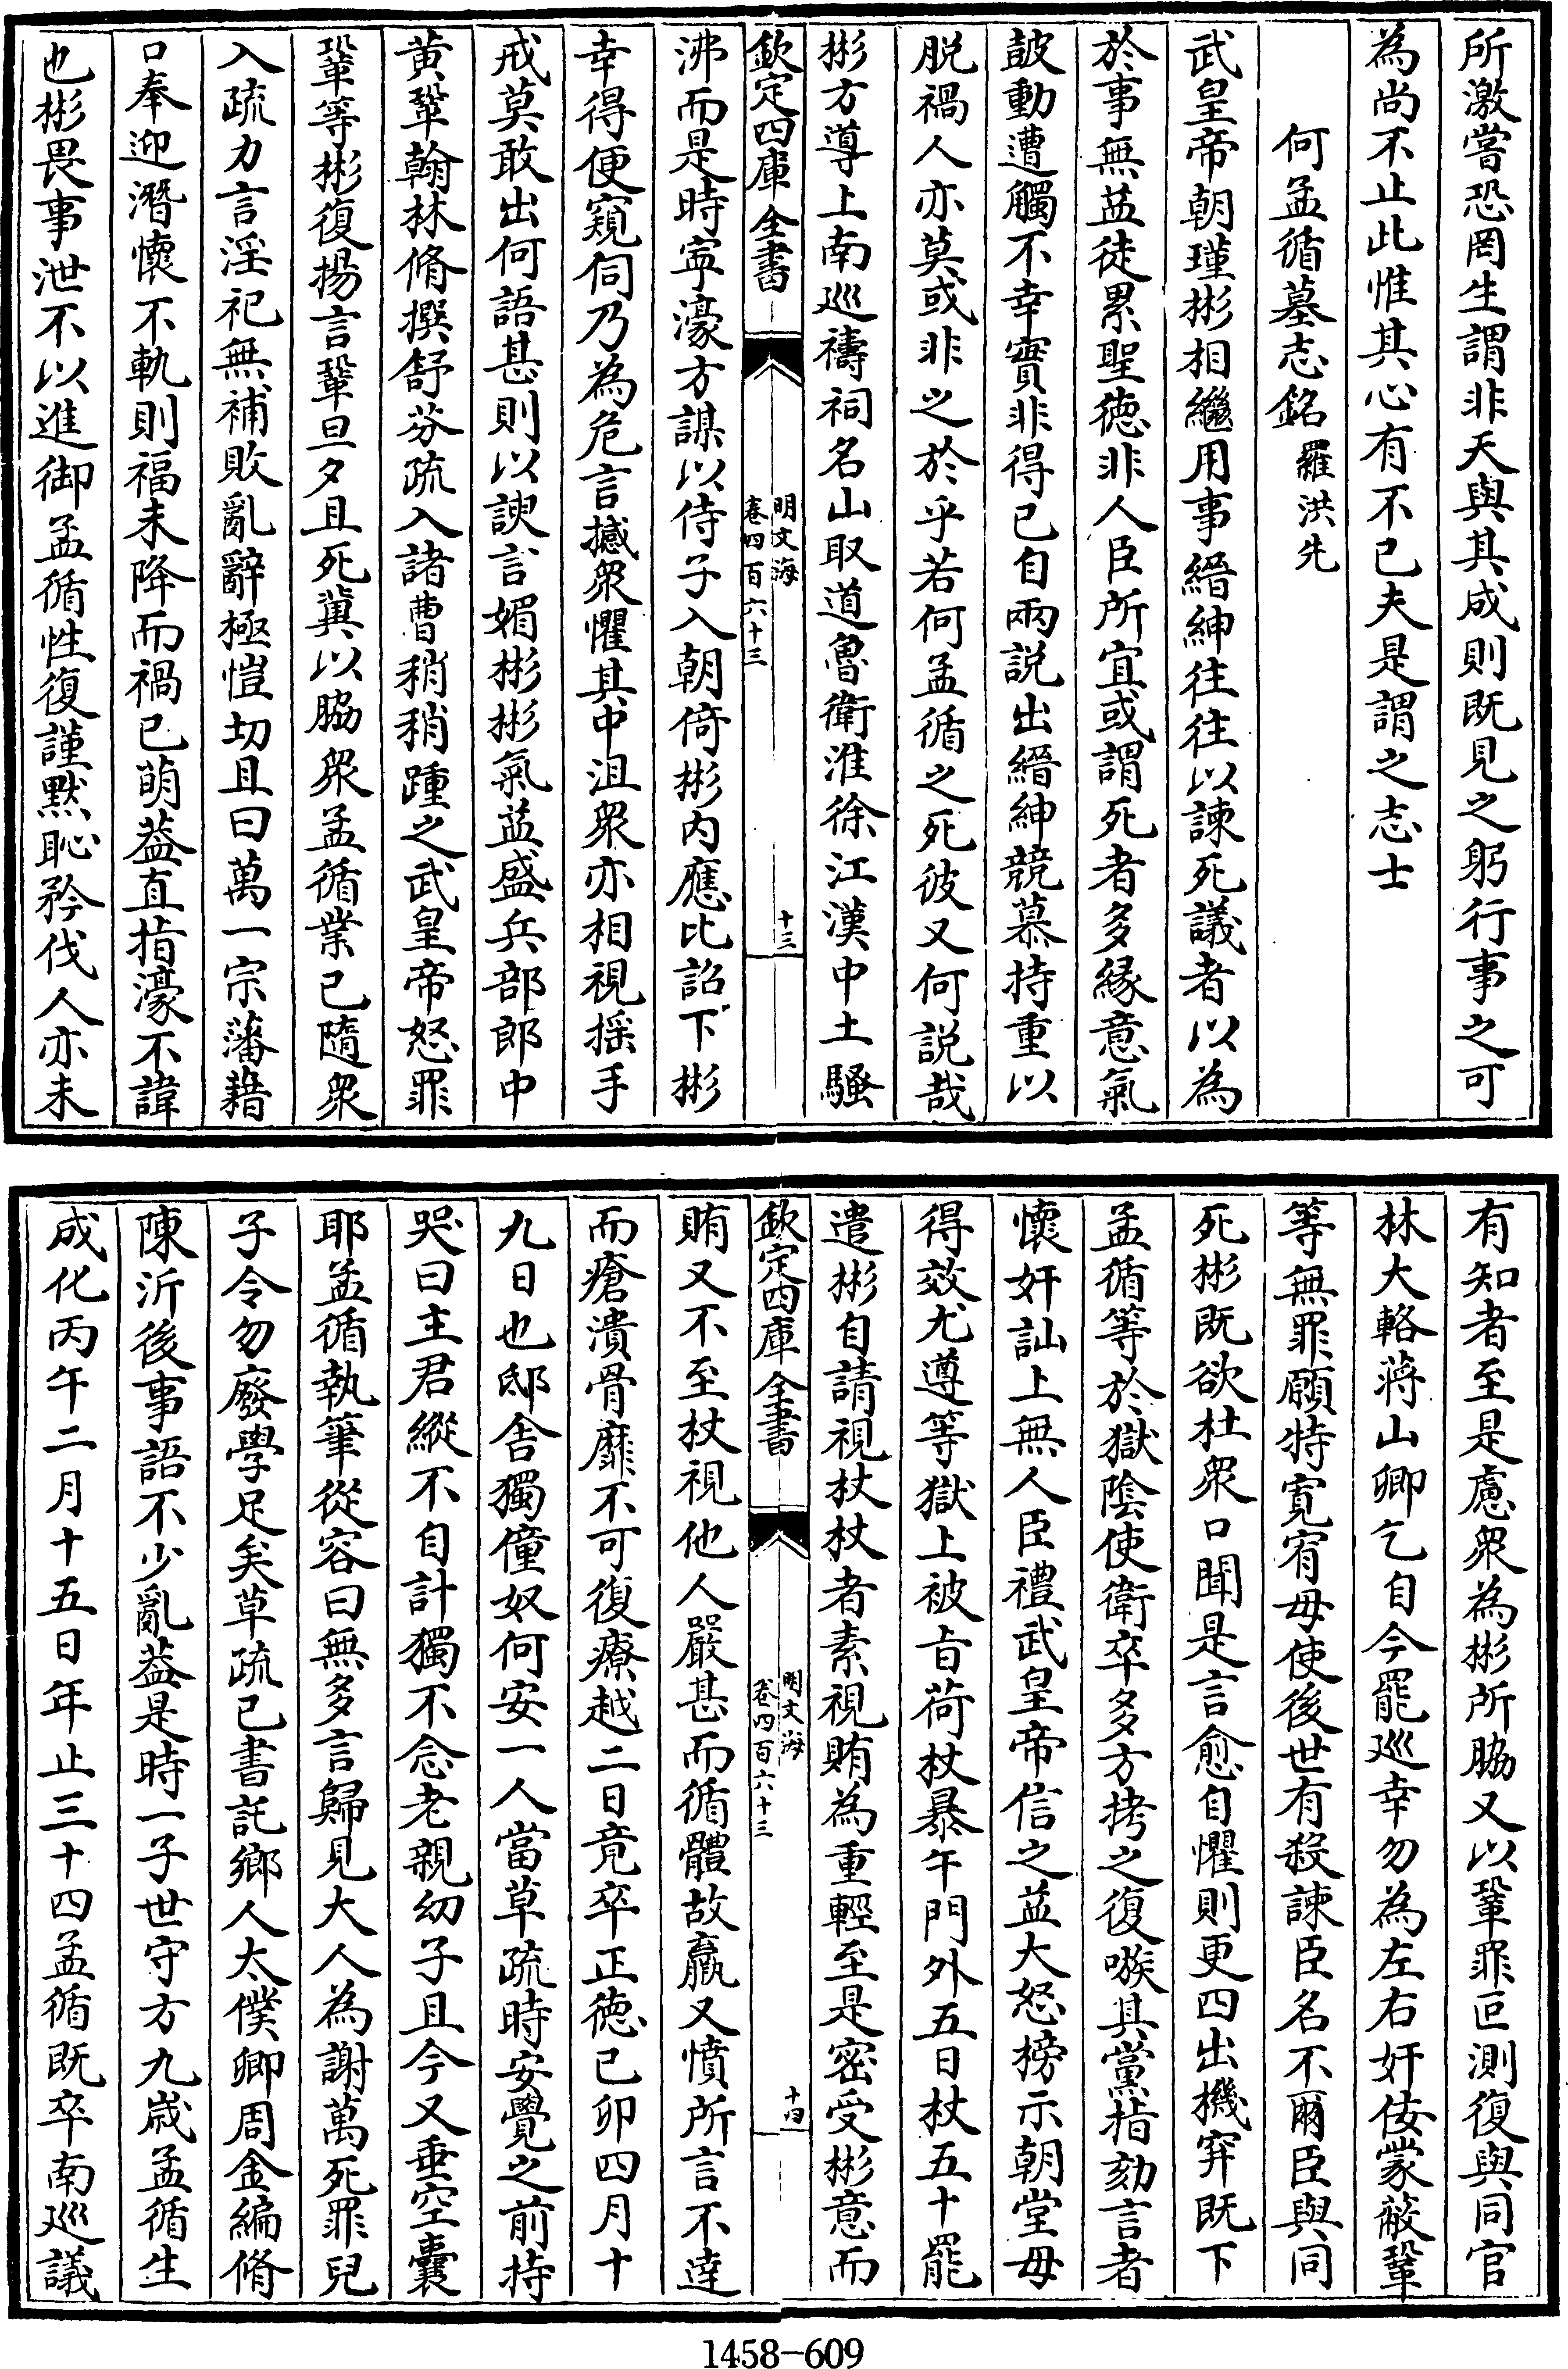 所激嘗恐罔生謂非天與其成則既見之躬行事之可
為尚不止此惟其心有不已夫是謂之志士
何孟循墓志銘 羅洪先
武皇帝朝瑾彬相繼用事縉紳往往以諫死議者以為
於事無益徒累聖徳非人臣所宜或謂死者多縁意氣
皷動遭觸不幸實非得已自兩説出縉紳競慕持重以
脱禍人亦莫或非之於乎若何孟循之死彼又何説哉
彬方導上南廵禱祠名山取道魯衛淮徐江漢中土騷
欽定四庫全書
明文海
卷四百六十三
十三
沸而是時寧濠方謀以侍子入朝倚彬内應比詔下彬
幸得便窺伺乃為危言撼衆懼其中沮衆亦相視揺手
戒莫敢出何語甚則以諛言媚彬彬氣益盛兵部郎中
黄鞏翰林脩撰舒芬疏入諸曹稍稍踵之武皇帝怒罪
鞏等彬復揚言鞏旦夕且死冀以脇衆孟循業已隨衆
入疏力言淫祀無補敗亂辭極愷切且曰萬一宗藩藉
口奉迎潛懷不軌則福未降而禍已萌葢直指濠不諱
也彬畏事泄不以進御孟循性復謹黙恥矜伐人亦未
有知者至是慮衆為彬所脇又以鞏罪叵測復與同官
林大輅蔣山卿乞自今罷廵幸勿為左右奸佞蒙蔽鞏
等無罪願特寛宥毋使後世有殺諫臣名不爾臣與同
死彬既欲杜衆口聞是言愈自懼則更四出機穽既下
孟循等於獄陰使衛卒多方拷之復嗾其黨指劾言者
懷奸訕上無人臣禮武皇帝信之益大怒榜示朝堂毋
得效尤遵等獄上被㫖荷杖暴午門外五日杖五十罷
遣彬自請視杖杖者素視賄為重輕至是密受彬意而
欽定四庫全書
明文海
卷四百六十三
十四
賄又不至杖視他人嚴甚而循體故羸又憤所言不逹
而瘡潰骨靡不可復療越二日竟卒正徳已卯四月十
九日也邸舎獨僮奴何安一人當草疏時安覺之前持
哭曰主君縱不自計獨不念老親幼子且今又垂空囊
耶孟循執筆從容曰無多言歸見大人為謝萬死罪兒
子令勿廢學足矣草疏已書託鄉人太僕卿周金編脩
陳沂後事語不少亂葢是時一子世守方九歳孟循生
成化丙午二月十五日年止三十四孟循既卒南廵議
1458-609